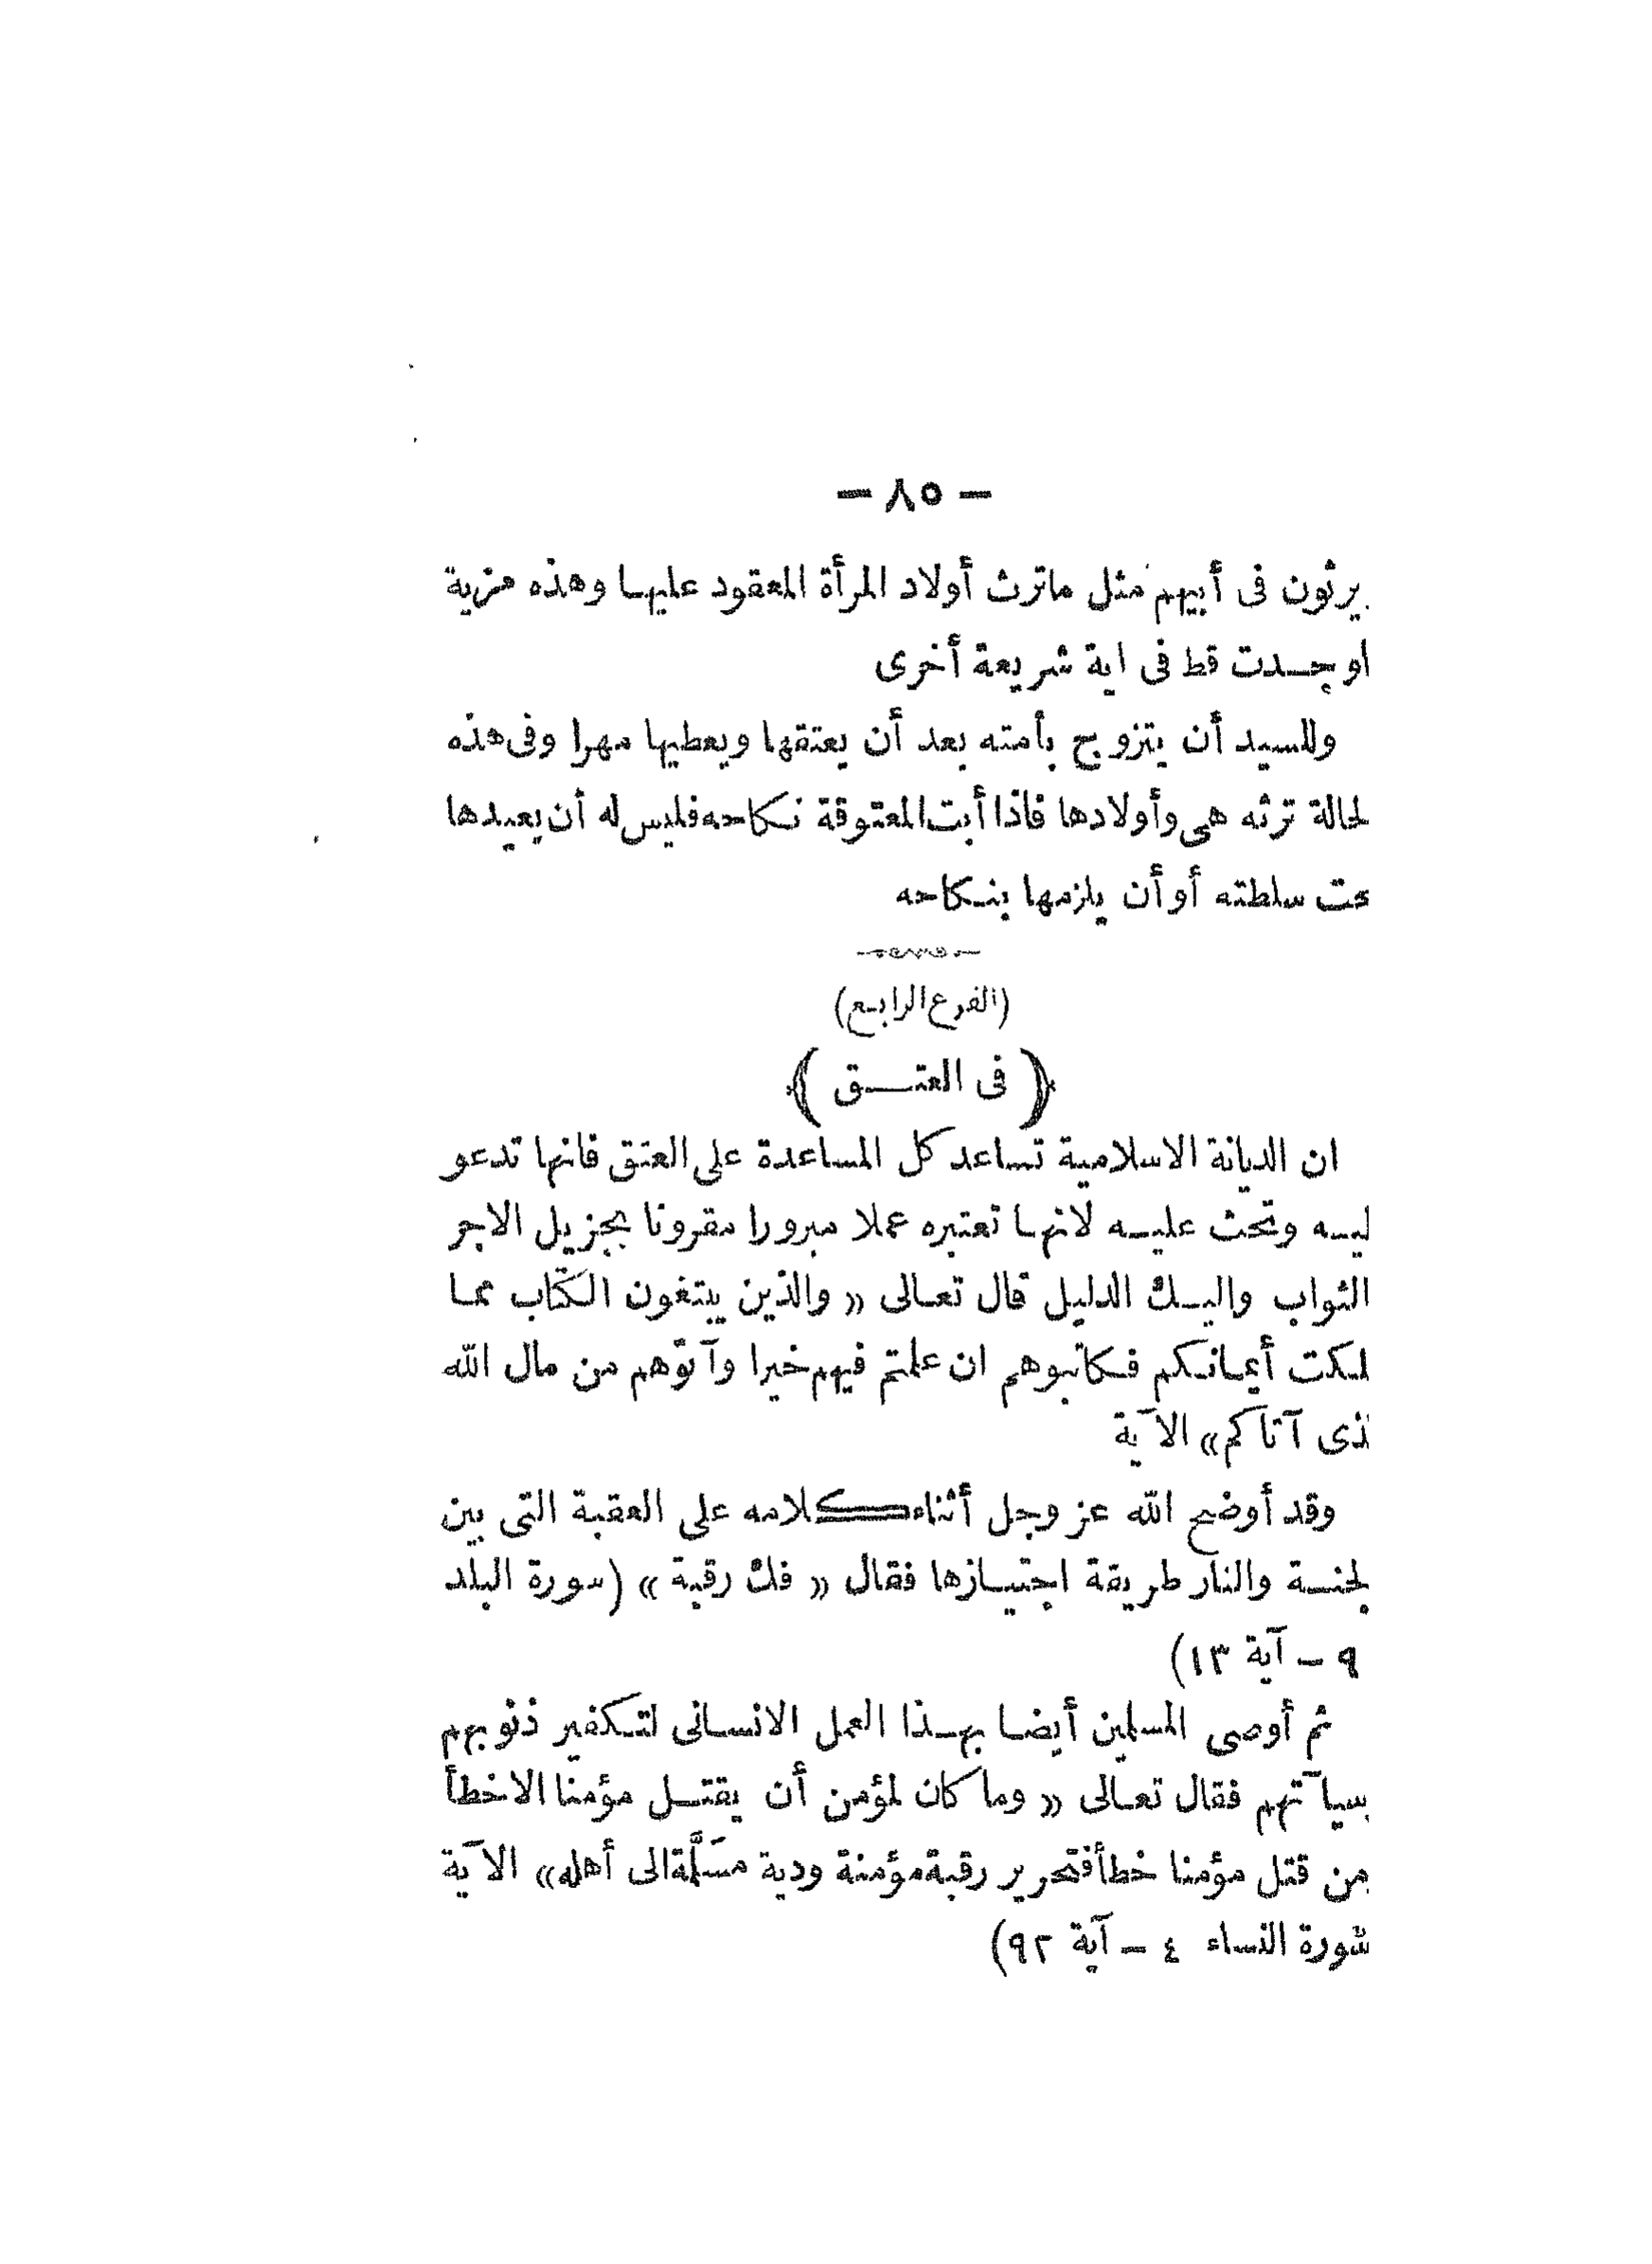 — ٨٥ —
يرثون فى أبيهم مثل ماترث أولاد المرأة المعقود عليها وهذه مزية
او جدت قط فى اية شريعة أخرى
وللسيد أن يتزوج بأمته بعد أن يعتقها ويعطيها مهرا وفى هذه
لحالة ترثه هى وأولادها فاذا أبت المعتوقة نكاحه فليس له أن يعيدها
تحت سلطته أو أن يلزمها بنكاحه
(الفرع الرابع)
﴿ فى العتق ﴾
ان الديانة الاسلامية تساعد كل المساعدة على العتق فانها تدعو
ليه وتحث عليه لانها تعتبره عملا مبرورا مقرونا بجزيل الاجر
الثواب واليك الدليل قال تعالى « والذين يبتغون الكتاب مما
لكت أيمانكم فكاتبوهم ان علمتم فيهم خيرا وآتوهم من مال الله
لذى آتاكم» الآية
وقد أوضح الله عز وجل أثناء كلامه على العقبة التى بين
لجنة والنار طريقة اجتيازها فقال « فك رقبة » (سورة البلد
٩ — آية ١٣)
ثم أوصى المسلمين أيضا بهذا العمل الانسانى لتكفير ذنوبهم
سيآتهم فقال تعالى « وما كان لمؤمن أن يقتل مؤمنا الاخطأ
من قتل مؤمنا خطأ فتحرير رقبة مؤمنة ودية مسَلَّمة الى أهله» الآية
سورة النساء ٤ — آية ٩٢)